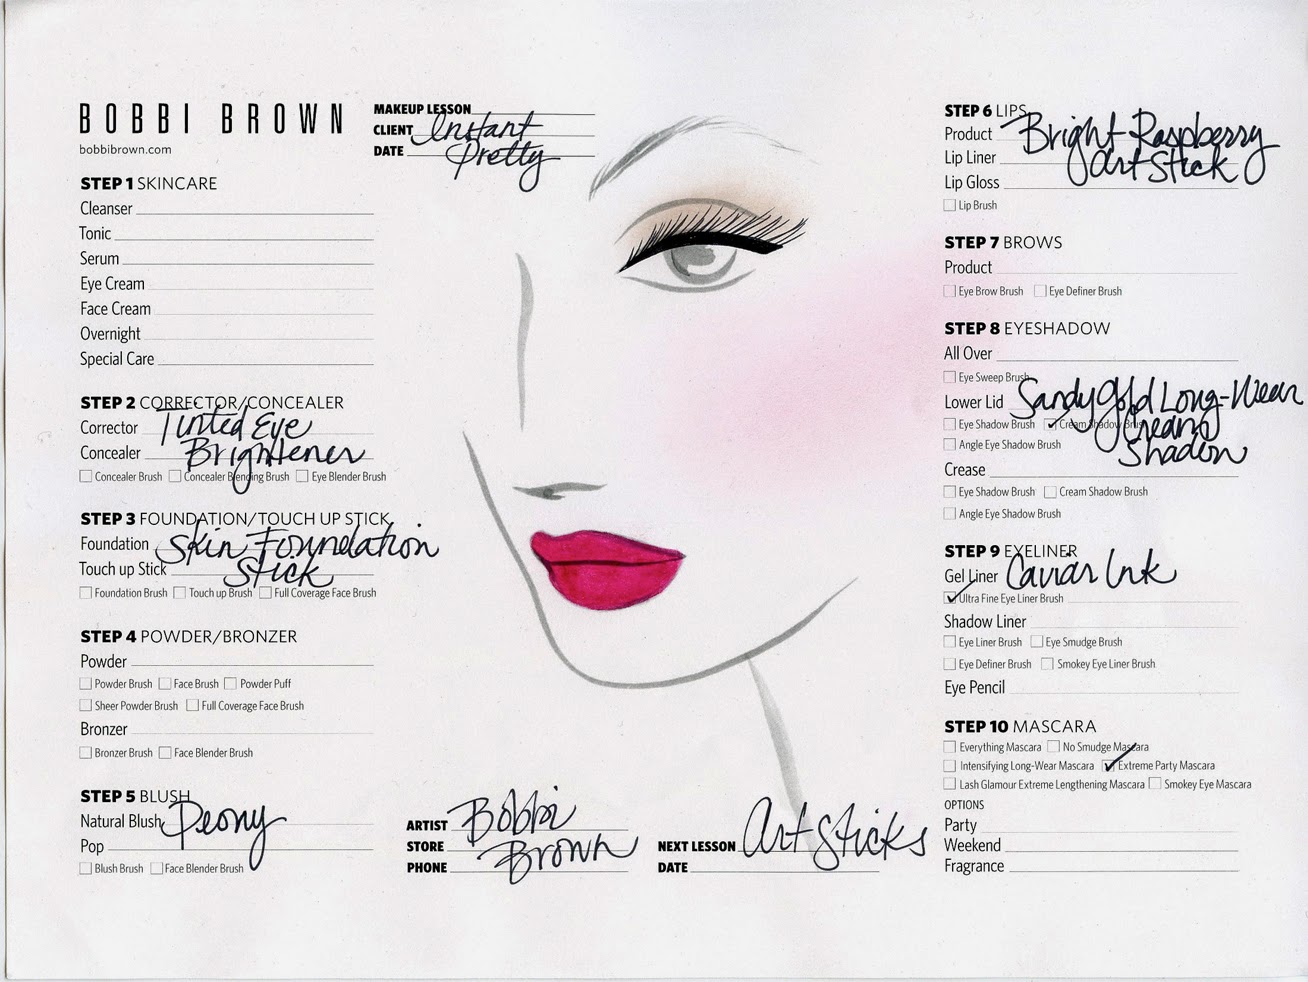 BOBBI BROWN
bobbibrown.com
MAKEUP LESSON
CLIENT Instant
DATE Pretty
STEP 1 SKINCARE
Cleanser
Tonic
Serum
Eye Cream
Face Cream
Overnight
Special Care
STEP 2 CORRECTOR/CONCEALER
Corrector Tinted Eye
Concealer Brightener
Concealer Brush Concealer Blending Brush Eye Blender Brush
STEP 3 FOUNDATION/TOUCH UP STICK
Foundation Skin Foundation
Touch up Stick Stick
Foundation Brush Touch up Brush Full Coverage Face Brush
STEP 4 POWDER/BRONZER
Powder
Powder Brush Face Brush Powder Puff
Sheer Powder Brush Full Coverage Face Brush
Bronzer
Bronzer Brush Face Blender Brush
STEP 5 BLUSH
Natural Blush Peony
Pop
Blush Brush Face Blender Brush
ARTIST Bobbi
STORE Brown
PHONE
NEXT LESSON Art Sticks
DATE
STEP 6 LIPS
Product Bright Raspberry
Lip Liner Art Stick
Lip Gloss
Lip Brush
STEP 7 BROWS
Product
Eye Brow Brush Eye Definer Brush
STEP 8 EYESHADOW
All Over
Eye Sweep Brush
Lower Lid Sandy Gold Long-Wear
Eye Shadow Brush Cream Shadow Brush Cream
Angle Eye Shadow Brush Shadow
Crease
Eye Shadow Brush Cream Shadow Brush
Angle Eye Shadow Brush
STEP 9 EYELINER
Gel Liner Caviar Ink
Ultra Fine Eye Liner Brush
Shadow Liner
Eye Liner Brush Eye Smudge Brush
Eye Definer Brush Smokey Eye Liner Brush
Eye Pencil
STEP 10 MASCARA
Everything Mascara No Smudge Mascara
Intensifying Long-Wear Mascara Extreme Party Mascara
Lash Glamour Extreme Lengthening Mascara Smokey Eye Mascara
OPTIONS
Party
Weekend
Fragrance